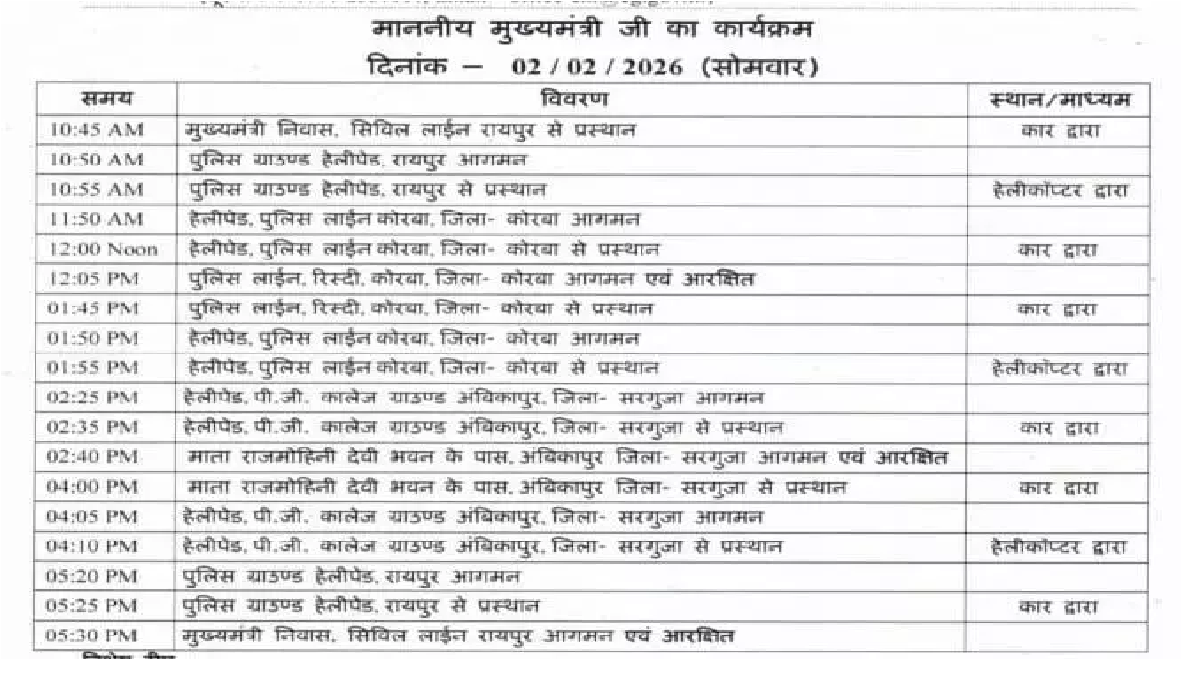 माननीय मुख्यमंत्री जी का कार्यक्रम
दिनांक – 02 / 02 / 2026 (सोमवार)
समय विवरण स्थान/माध्यम
10:45 AM मुख्यमंत्री निवास, सिविल लाईन रायपुर से प्रस्थान कार द्वारा
10:50 AM पुलिस ग्राउण्ड हेलीपेड, रायपुर आगमन
10:55 AM पुलिस ग्राउण्ड हेलीपेड, रायपुर से प्रस्थान हेलीकॉप्टर द्वारा
11:50 AM हेलीपेड, पुलिस लाईन कोरबा, जिला- कोरबा आगमन
12:00 Noon हेलीपेड, पुलिस लाईन कोरबा, जिला- कोरबा से प्रस्थान कार द्वारा
12:05 PM पुलिस लाईन, रिस्दी, कोरबा, जिला- कोरबा आगमन एवं आरक्षित
01:45 PM पुलिस लाईन, रिस्दी, कोरबा, जिला- कोरबा से प्रस्थान कार द्वारा
01:50 PM हेलीपेड, पुलिस लाईन कोरबा, जिला- कोरबा आगमन
01:55 PM हेलीपेड, पुलिस लाईन कोरबा, जिला- कोरबा से प्रस्थान हेलीकॉप्टर द्वारा
02:25 PM हेलीपेड, पी.जी. कालेज ग्राउण्ड अंबिकापुर, जिला- सरगुजा आगमन
02:35 PM हेलीपेड, पी.जी. कालेज ग्राउण्ड अंबिकापुर, जिला- सरगुजा से प्रस्थान कार द्वारा
02:40 PM माता राजमोहिनी देवी भवन के पास, अंबिकापुर जिला- सरगुजा आगमन एवं आरक्षित
04:00 PM माता राजमोहिनी देवी भवन के पास, अंबिकापुर जिला- सरगुजा से प्रस्थान कार द्वारा
04:05 PM हेलीपेड, पी.जी. कालेज ग्राउण्ड अंबिकापुर, जिला- सरगुजा आगमन
04:10 PM हेलीपेड, पी.जी. कालेज ग्राउण्ड अंबिकापुर, जिला- सरगुजा से प्रस्थान हेलीकॉप्टर द्वारा
05:20 PM पुलिस ग्राउण्ड हेलीपेड, रायपुर आगमन
05:25 PM पुलिस ग्राउण्ड हेलीपेड, रायपुर से प्रस्थान कार द्वारा
05:30 PM मुख्यमंत्री निवास, सिविल लाईन रायपुर आगमन एवं आरक्षित